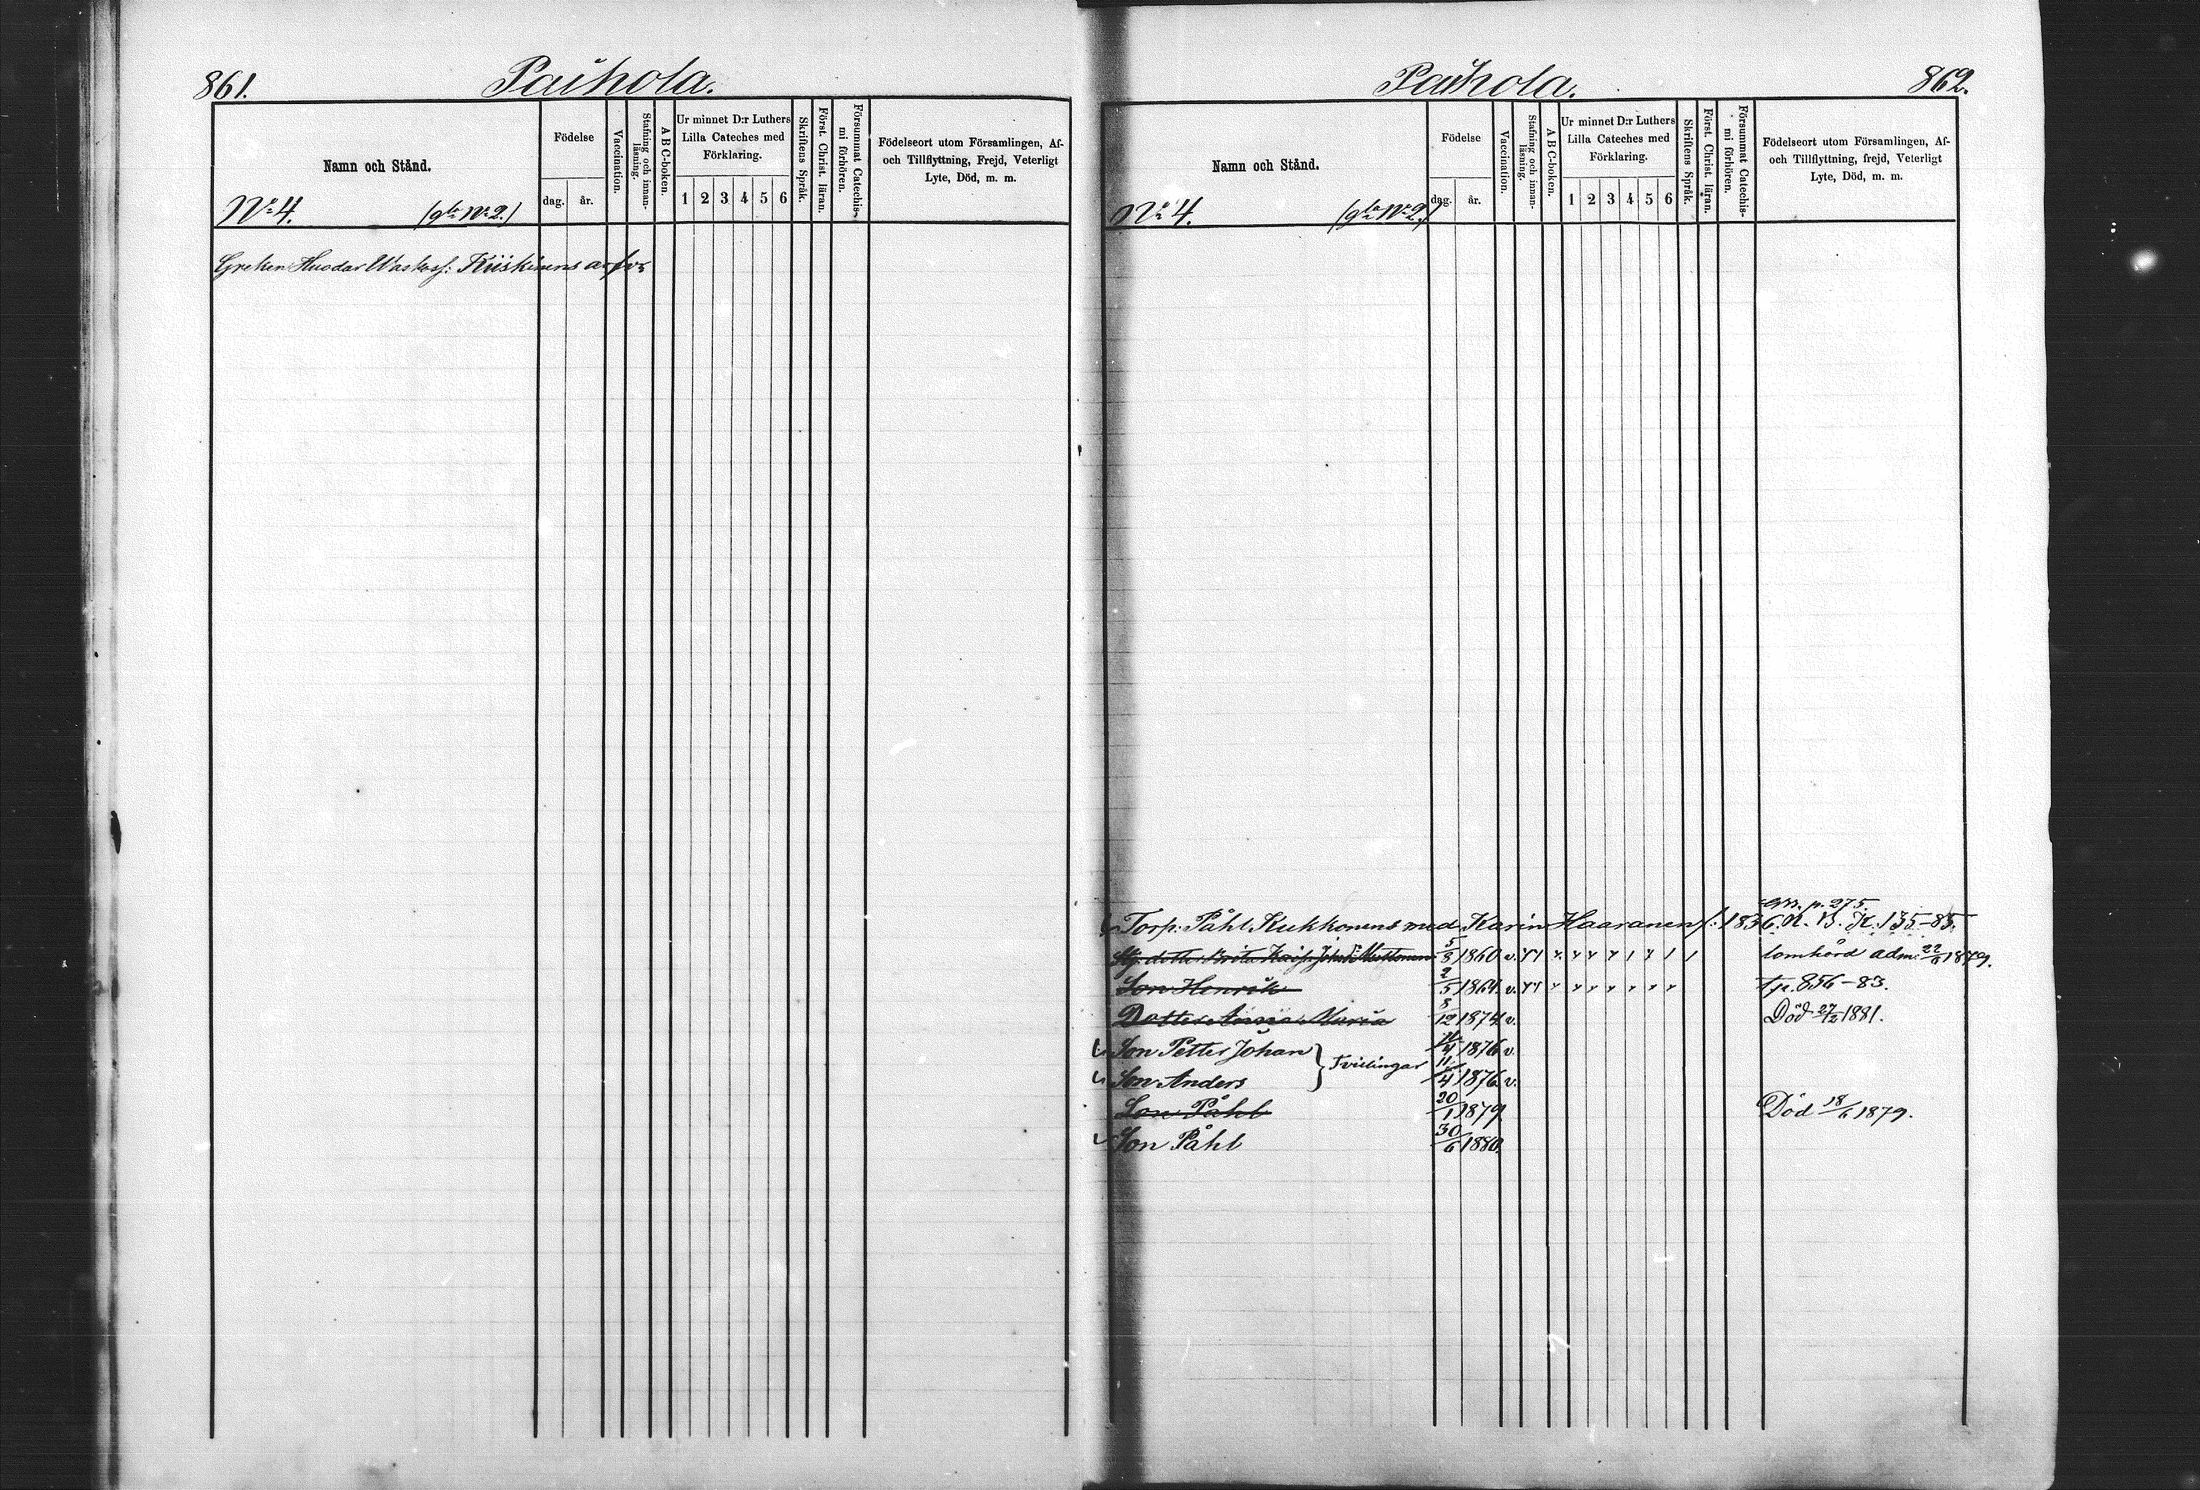 861.
Paihola.
Namn och Stånd.
Födelse
dag.
år.
Vaccination.
Stafning och innanläsning.
A B C-boken.
Ur minnet D:r Luthers
Lilla Cateches med
Förklaring.
1 2 3 4 5 6
Skriftens Språk.
Först. Christ. läran.
Försummat Catechismi förhören.
Födelseort utom Församlingen, Af-
och Tillflyttning, Frejd, Veterligt
Lyte, Död, m. m.
No 4. (gla No 2.)
Greken Huodar Waskoff: Kiiskinens arfvr
Paihola.
862.
Namn och Stånd.
Födelse
dag.
år.
Vaccination.
Stafning och innanläsning.
A B C-boken.
Ur minnet D:r Luthers
Lilla Cateches med
Förklaring.
1 2 3 4 5 6
Skriftens Språk.
Först. Christ. läran.
Försummat Catechismi förhören.
Födelseort utom Församlingen, Af-
och Tillflyttning, frejd, Veterligt
Lyte, Död, m. m.
No 4. (gla No 2.)
p. 275.
Torp: Påhl Kukkonens med Karin Haaranen f: 1836. N. B. K. 135-85.
dotter Brita Kaisa Johan Mustonen 5/8 1860 v. lomhörd adm: 1879.
Son Henrik 2/5 1864 v. tp. 856-83.
Dotter Anna Maria 8/12 1874 v. Död 27/2 1881.
Son Petter Johan } Tvillingar 11/4 1876 v.
Son Anders 11/4 1876 v.
Son Påhl 20/1 1879 Död 18/6 1879.
Son Påhl 30/6 1880.